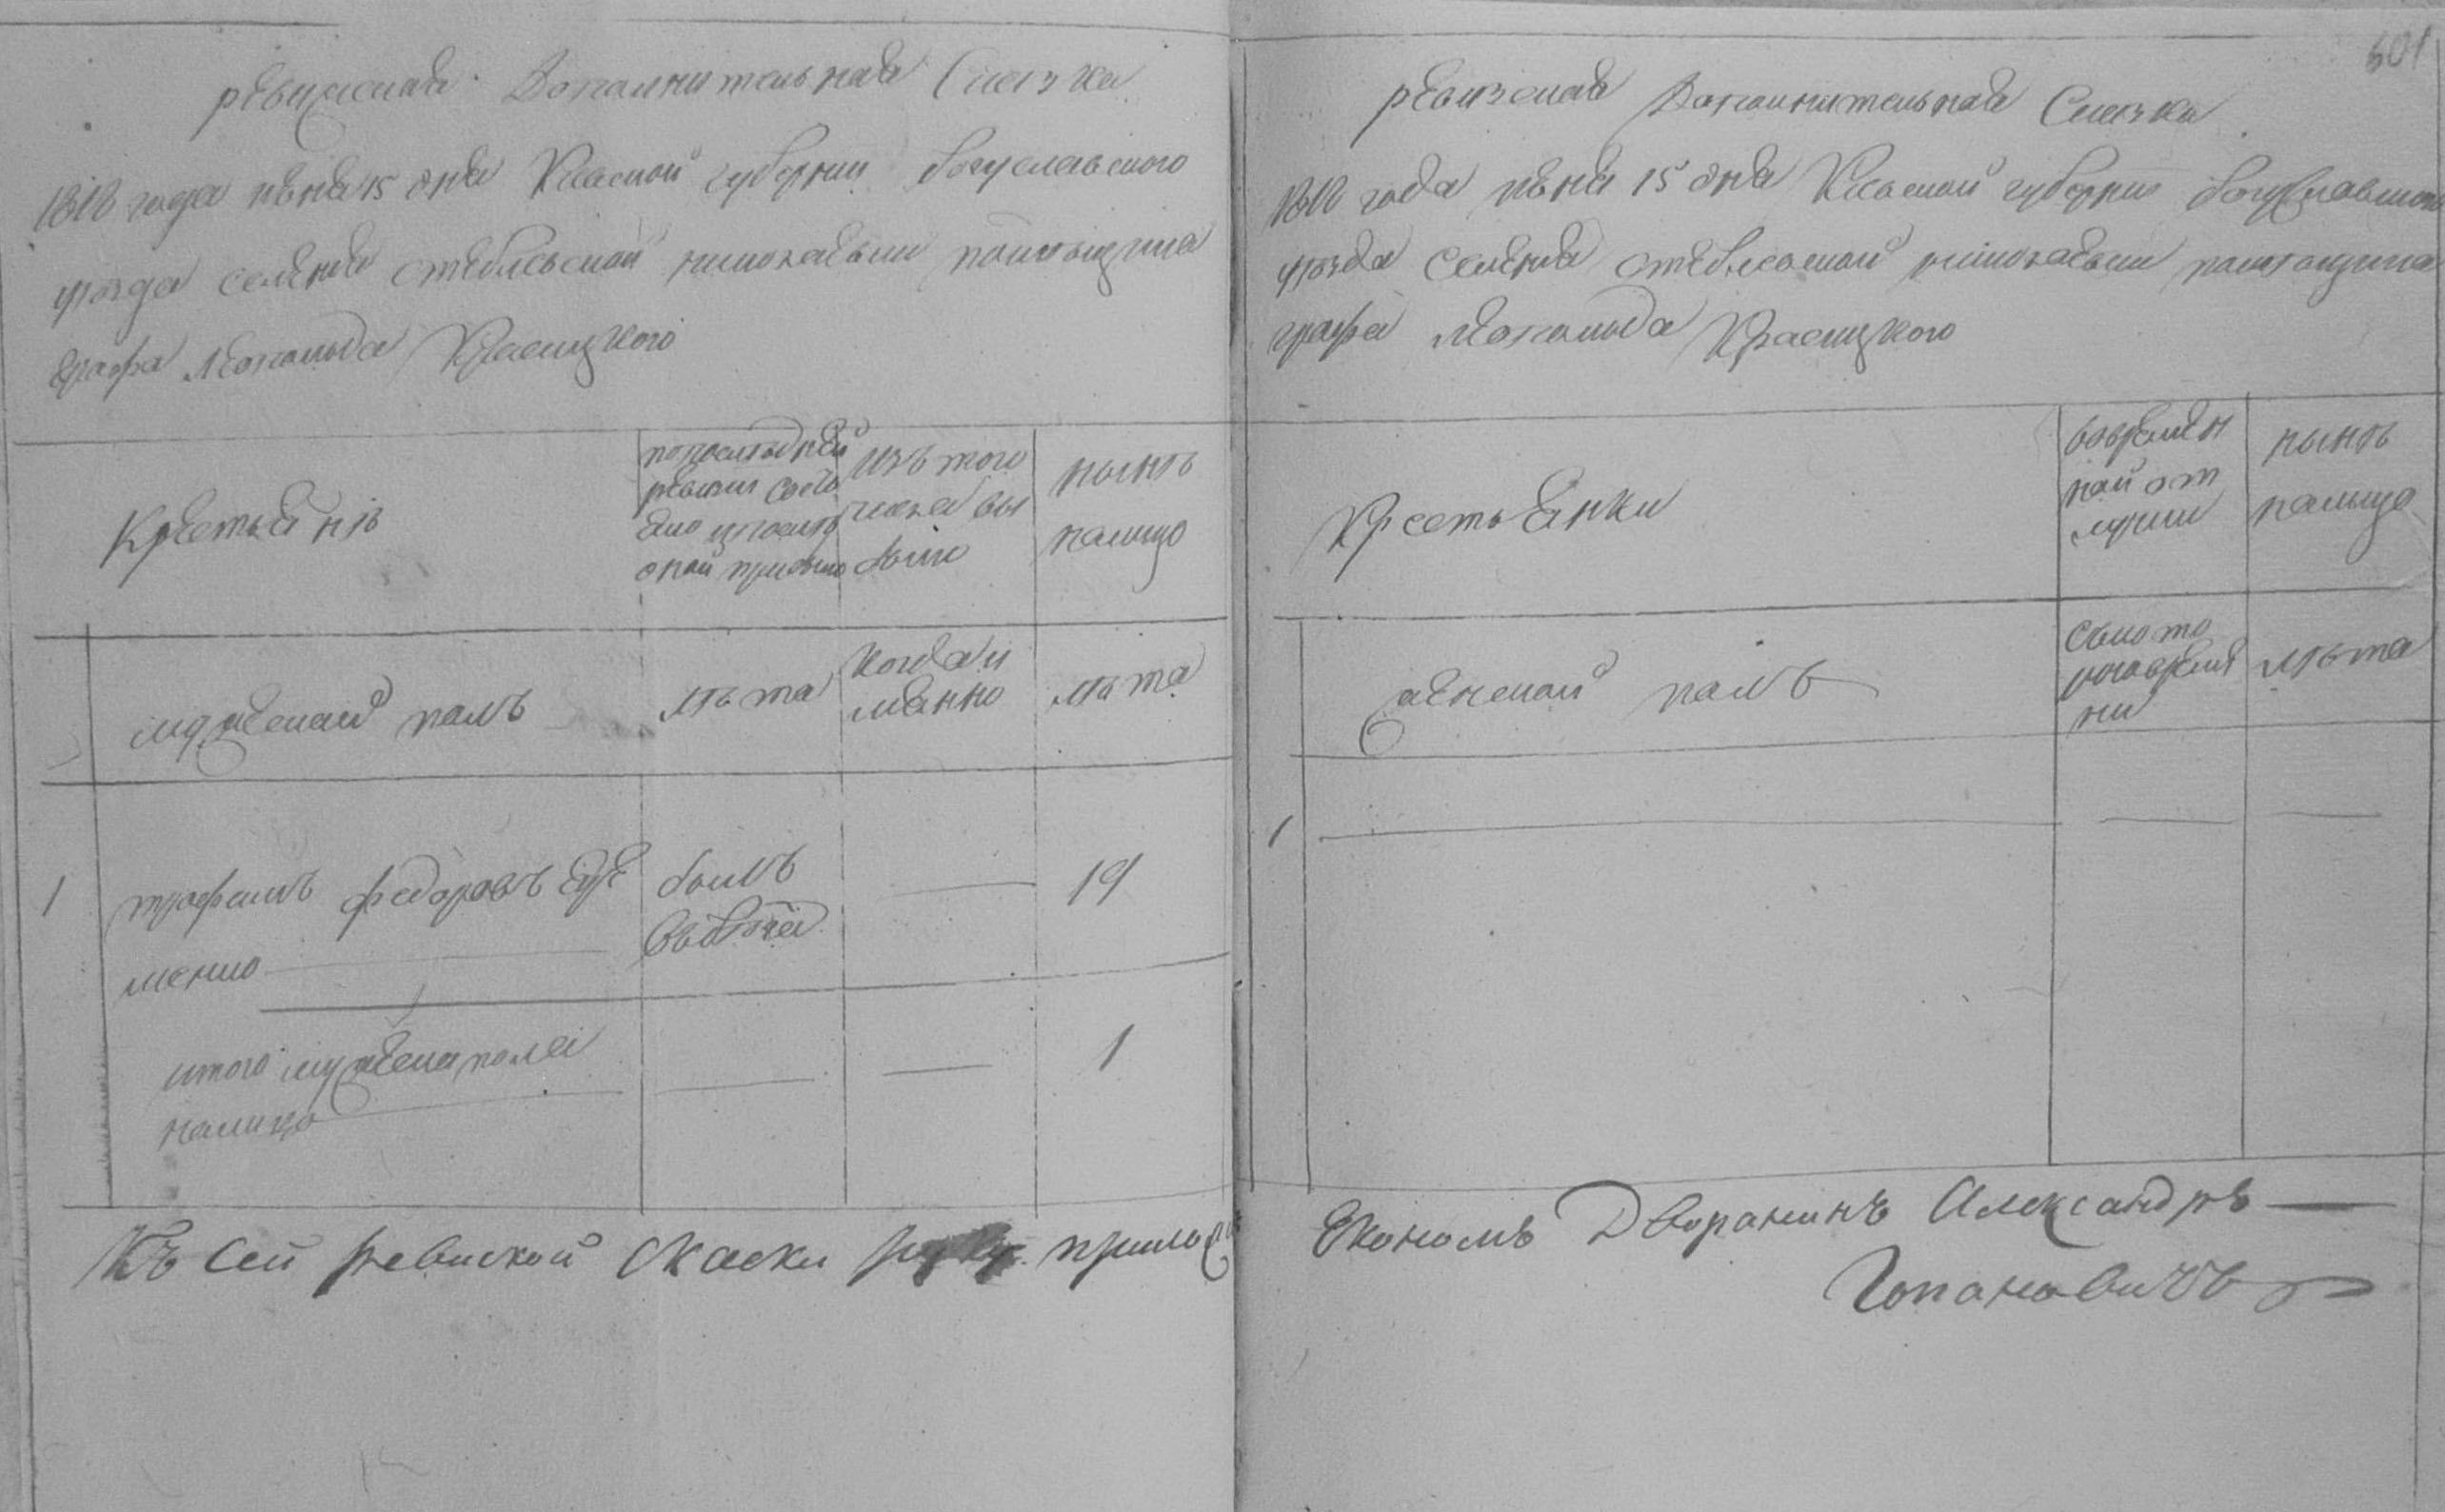 ревизская Дополнительная Сказка
1818 года июня 15 дня Киевской губернии богуславского
уезда селения стеблевской николаевки помещика
Графа Леополда Красицкого
Крестьянъ
по последней
ревизии состо
яло и после
оной прибыло
Изъ того
числа вы
было
нынѣ
налицо
мужеской полъ
лѣта
когда и
менно
лѣта
1
трофимъ федоровъ Ере
менко
былъ
в
19
итого мужеска пола
налицо
1
Къ Сей Ревиской Скаски руку прилож
501
ревизская Дополнительная Сказка
1818 года июня 15 дня Киевской губернии богуславского
уезда Селения стеблевской николаевки помещика
графа Леополда Красицкого
Крестьянки
во времен
ной от
лучки
нынѣ
налицо
женской полъ
Съ кото
рого време
ни
лѣта
1
Економъ Дворанинъ Александръ